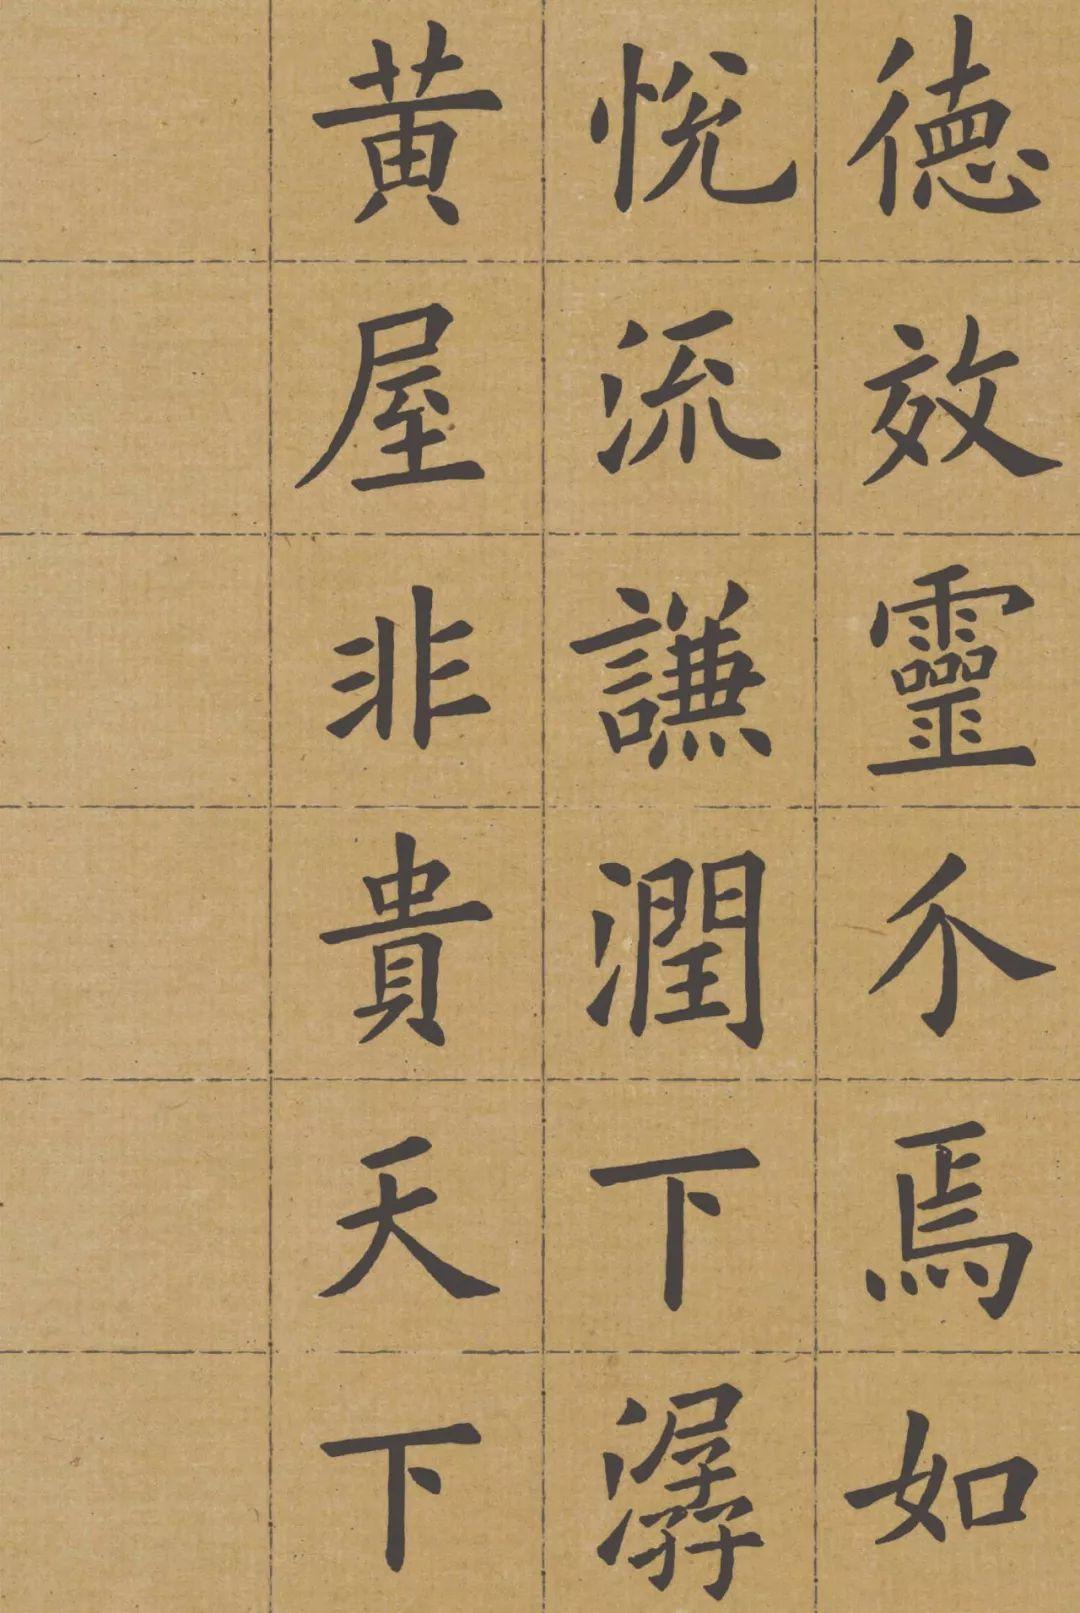 徳效靈介焉如
悦流謙潤下潺
黄屋非貴天下